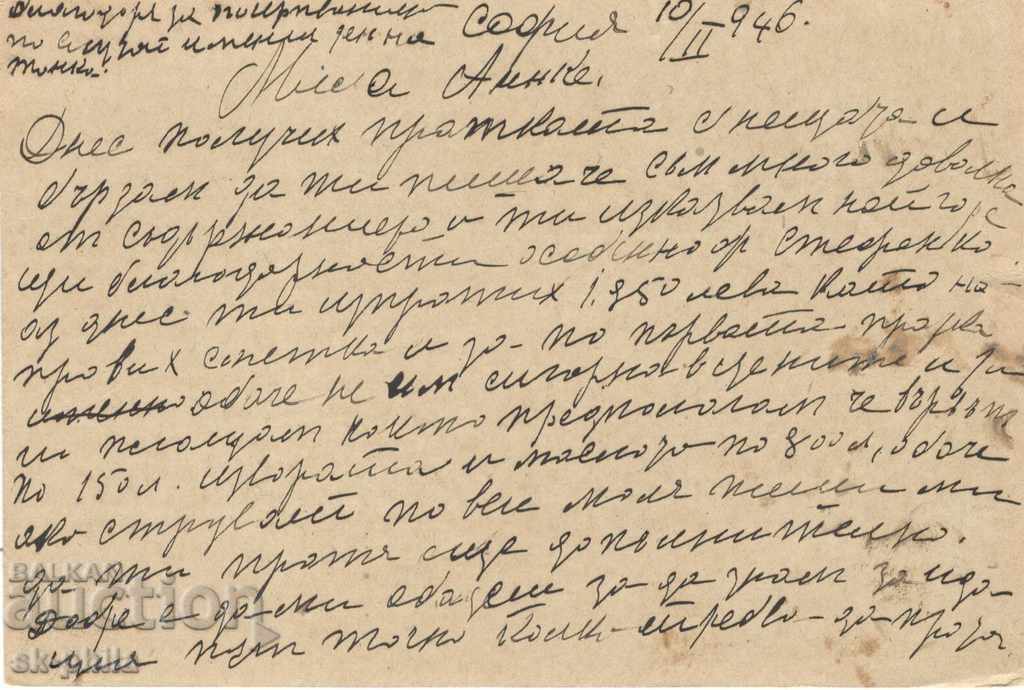 благодаря за
по случай имения ден на
Тонка.
София 10/II 946.
Мила Анке,
Днес получих пратката с нещата и
бързам да ти пиша че съм много доволна
от съдържанието и ти изказвам най го-
щи благодарности особенно Стефенко.
аз днес ти изпратих 1.850 лева които на-
правих сметка и за по първата пратка
обаче не съм сигорна в цените и
ти плащам които предполагам че
по 150 л. извората и маслото по 800 л, обаче
ако струват повеч моля пиши ми
да ти пратя още допълнително.
Добре е да ми обадеш за да знам за ида-
щия път точно колко трябва да
BALKAN
auction
sk-phila